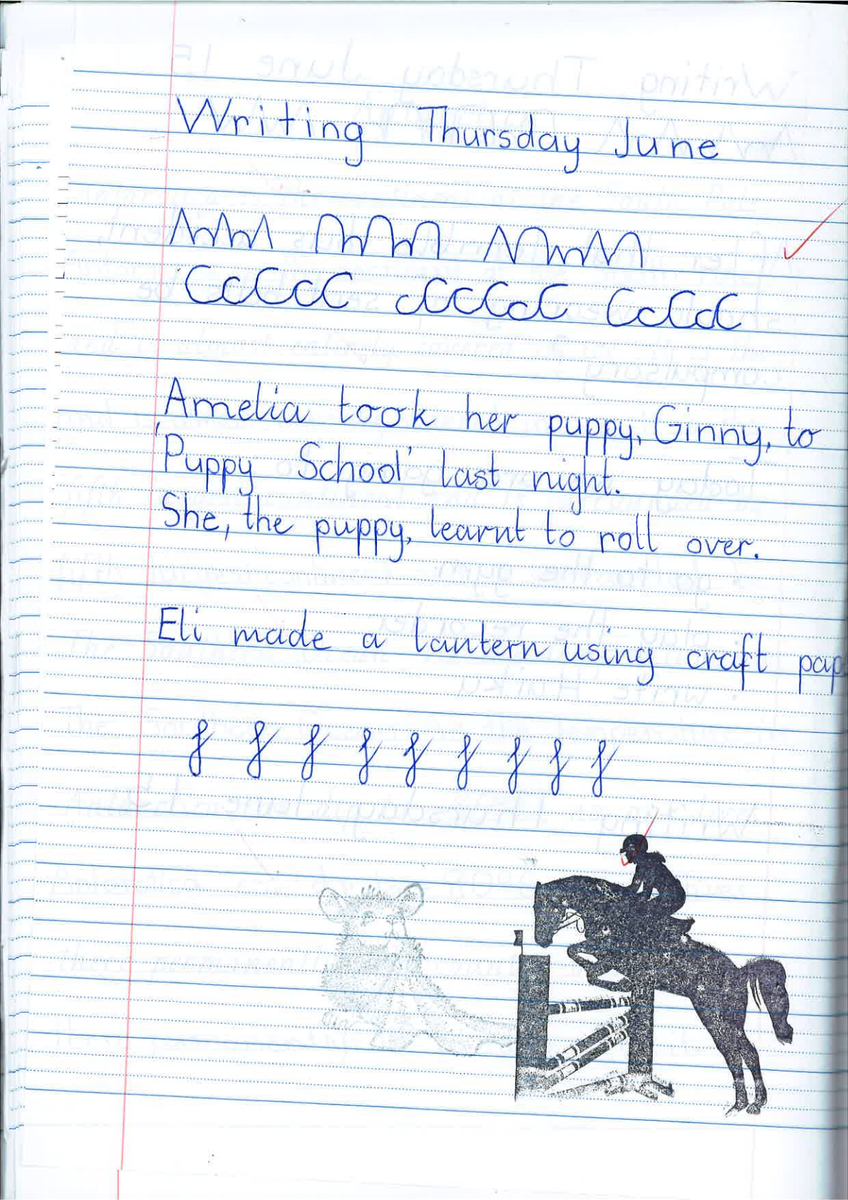 Writing Thursday June
CcCcC cCcCcC CcCcC
Amelia took her puppy, Ginny, to
'Puppy School' last night.
She, the puppy, learnt to roll over.
Eli made a lantern using craft pap
f f f f f f f f f